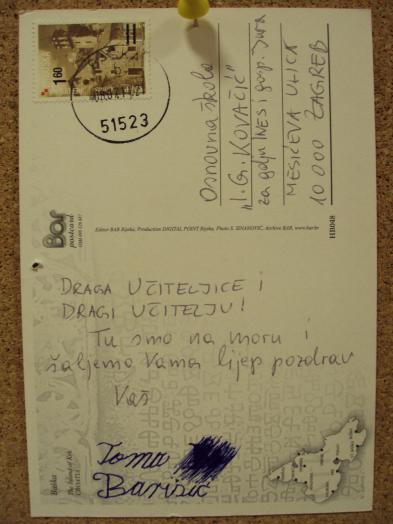 1.60
51523
Osnovna škola
"I. G. KOVAČIĆ"
za gđu INES i gosp. Jura
MESIĆEVA ULICA
10 000 ZAGREB
Bar
postcard
Editor BAR Rijeka, Production DIGITAL POINT Rijeka, Photo S. SINANOVIĆ, Archive BAR, www.bar.hr
HB048
DRAGA UČITELJICE I
DRAGI UČITELJU!
Tu smo na moru i
šaljemo Vama lijep pozdrav
Vaš
Toma
Barišić
Baška
The Island of Krk
CROATIA